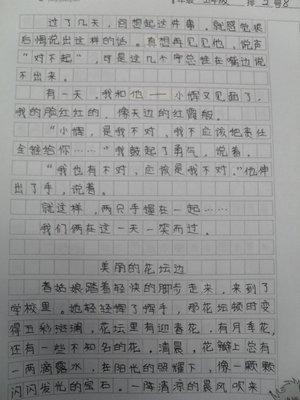 过了几天，回想起这件事，就感觉很
后悔说出这样的话。真想再见见他，说声
“对不起”，可是这几个字总往在嘴边说
不出来。
有一天，我和他——小辉又见面了，
我的脸红红的，像天边的红霞般。
“小辉，是我不对，我不应该把责任
全推给你……”我鼓起了勇气，说着。
“我也有不对，应该是我不对。”他伸
出了手，说着。
就这样，两只手握在一起……
我们俩在这一天一笑而过。
美丽的花坛边
春姑娘踏着轻快的脚步走来，来到了
学校里。她轻轻挥了挥手，那花坛顿时变
得五彩斑斓，花坛里有迎春花，有月季花，
还有一些不知名的花。清晨，花瓣上总有
一两滴露水，在阳光的照耀下，像一颗颗
闪闪发光的宝石。一阵清凉的晨风吹来，